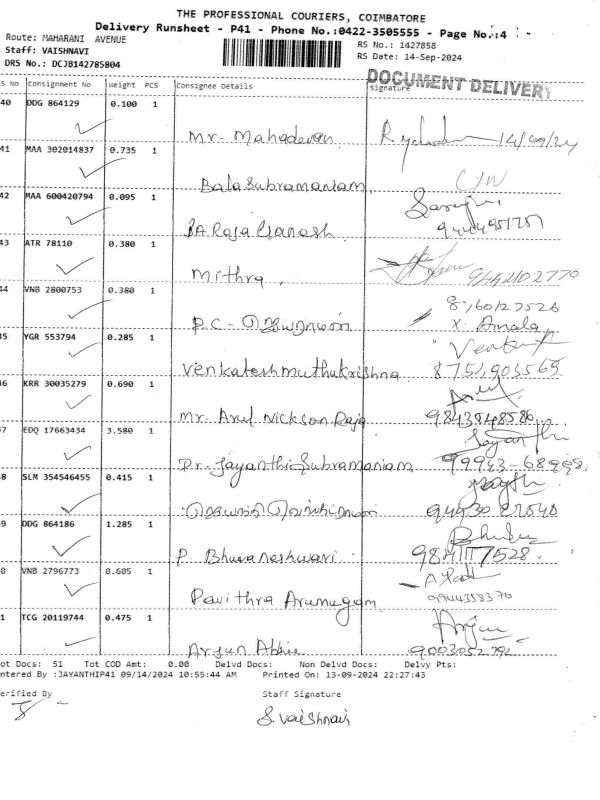 THE PROFESSIONAL COURIERS, COIMBATORE
Delivery Runsheet - P41 - Phone No.:0422-3505555 - Page No.:4
Route: MAHARANI AVENUE
RS No.: 1427858
Staff: VAISHNAVI
RS Date: 14-Sep-2024
DRS No.: DCJB142785804
DOCUMENT DELIVERY
S No Consignment No Weight PCS Consignee Details Signature
40 DDG 864129 0.100 1
Mr- Mahadevan 14/09/24
41 MAA 302014837 0.735 1
Balasubramaniam. C/W
42 MAA 600420794 0.095 1
BA Raja Ganesh.
43 ATR 78110 0.380 1
Mithra,
44 VNB 2800753 0.380 1
P.C - ஜெயராமன் X. Amala
45 YGR 553794 0.285 1
Venkatesh muthukrishna 8751903565
46 KRR 30035279 0.690 1
Mr. Arul Nickson Raja 9843548586
47 EDQ 17663434 3.580 1
Dr. Jayanthi Subramaniam
48 SLM 354546455 0.415 1
49 DDG 864186 1.285 1
P. Bhuvaneshwari
50 VNB 2796773 0.605 1
Pavithra Arumugam 9944358370
51 TCG 20119744 0.475 1
Arjun 9003052792
Tot Docs: 51 Tot COD Amt: 0.00 Delvd Docs: Non Delvd Docs: Delvy Pts:
Entered By :JAYANTHIP41 09/14/2024 10:55:44 AM Printed On: 13-09-2024 22:27:43
Verified By Staff Signature
S. Vaishnavi